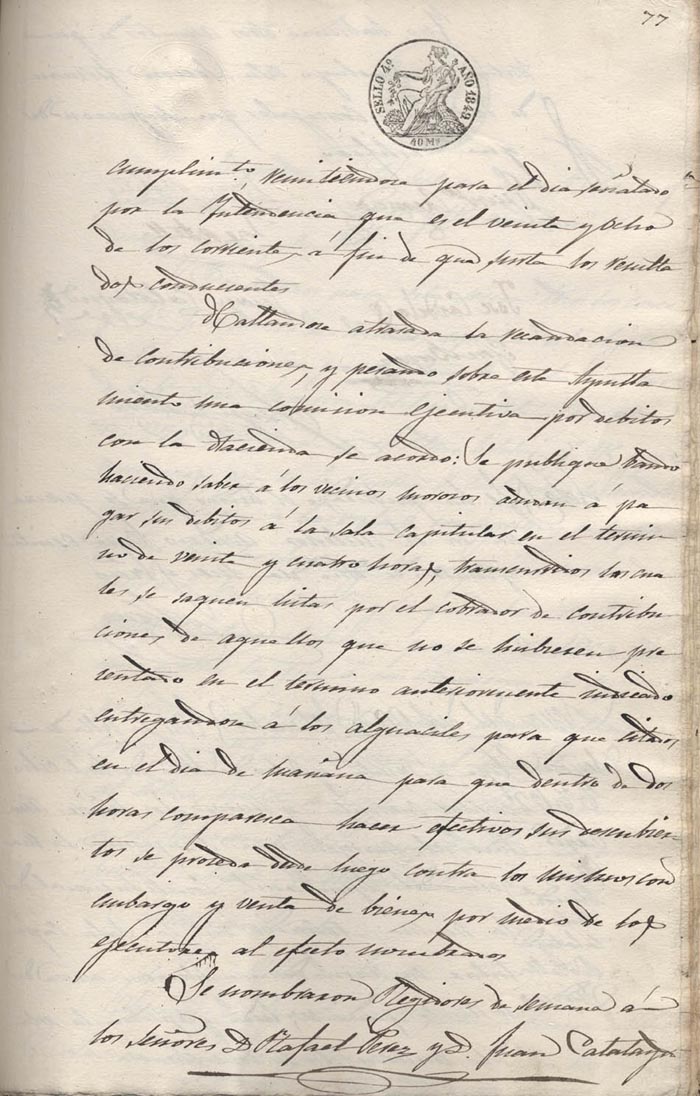 77
SELLO 4º AÑO 1849
40 Ms
cumplimto, remitiendose para el dia señalado
por la Intendencia que es el veinte y ocho
de los corrientes, á fin de que surta los resulta
dos conducentes
Hallandose atrasada la recaudacion
de contribuciones, y pesando sobre este Ayunta
miento una comision ejecutiva por debitos
con la Hacienda se acordo: Se publique bando
haciendo saber á los vecinos morosos acudan á pa
gar sus debitos á la sala capitular en el termi
no de veinte y cuatro horas, transcurridos las cua
les se saquen listas por el cobrador de contribu
ciones de aquellos que no se hubiesen pre
sentado en el termino anteriormente indicado
entregandose á los alguaciles para que citados
en el dia de mañana para que dentro de dos
horas comparesca hacer efectivos sus descubier
tos se proceda desde luego contra los mismos con
embargo y venta de bienes por medio de los
ejecutores al efecto nombrados
Se nombraron Regidores de semana á
los señores D. Rafael Perez y D. Juan Catalayu